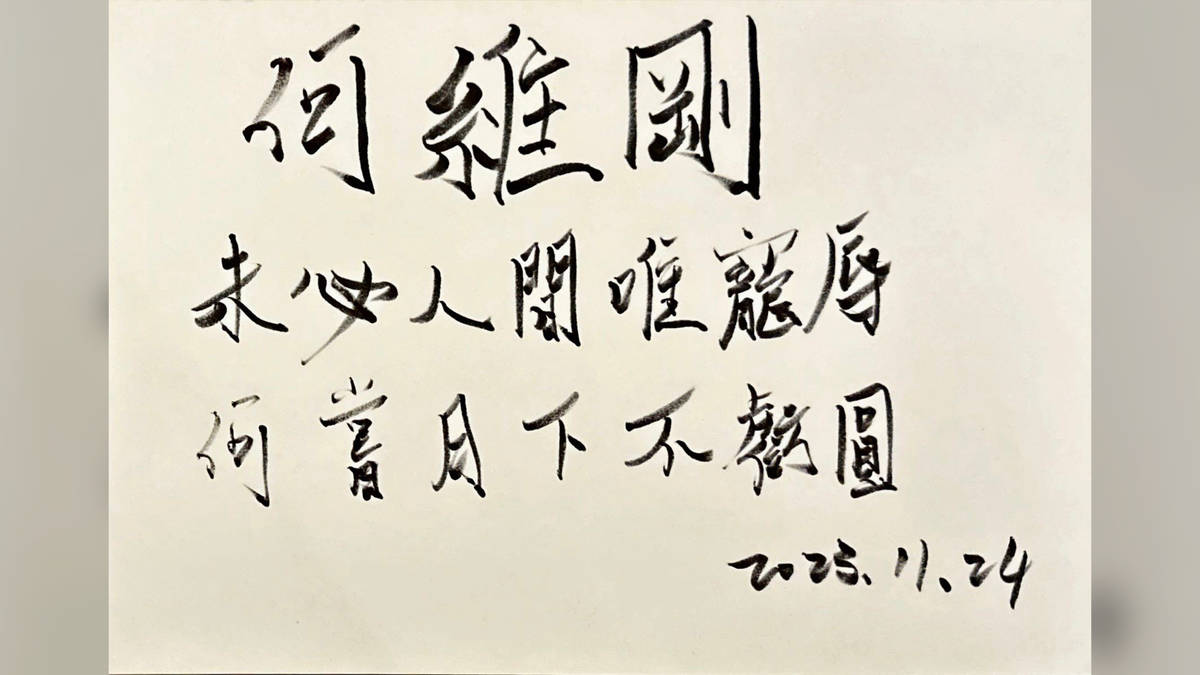 何維剛
未必人間唯寵辱
何嘗月下不虧圓
2025.11.24